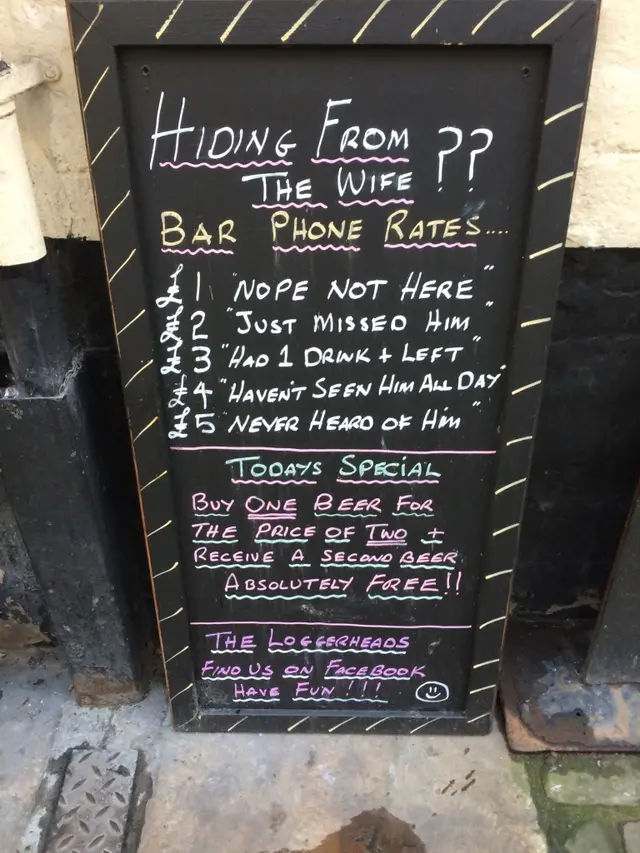 HIDING FROM ??
THE WIFE
BAR PHONE RATES....
£1 "NOPE NOT HERE"
£2 "JUST MISSED HIM"
£3 "HAD 1 DRINK + LEFT"
£4 "HAVEN'T SEEN HIM ALL DAY"
£5 "NEVER HEARD OF HIM"
TODAYS SPECIAL
BUY ONE BEER FOR
THE PRICE OF TWO +
RECEIVE A SECOND BEER
ABSOLUTELY FREE!!
THE LOGGERHEADS
FIND US ON FACEBOOK
HAVE FUN!!!